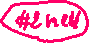 #2 new